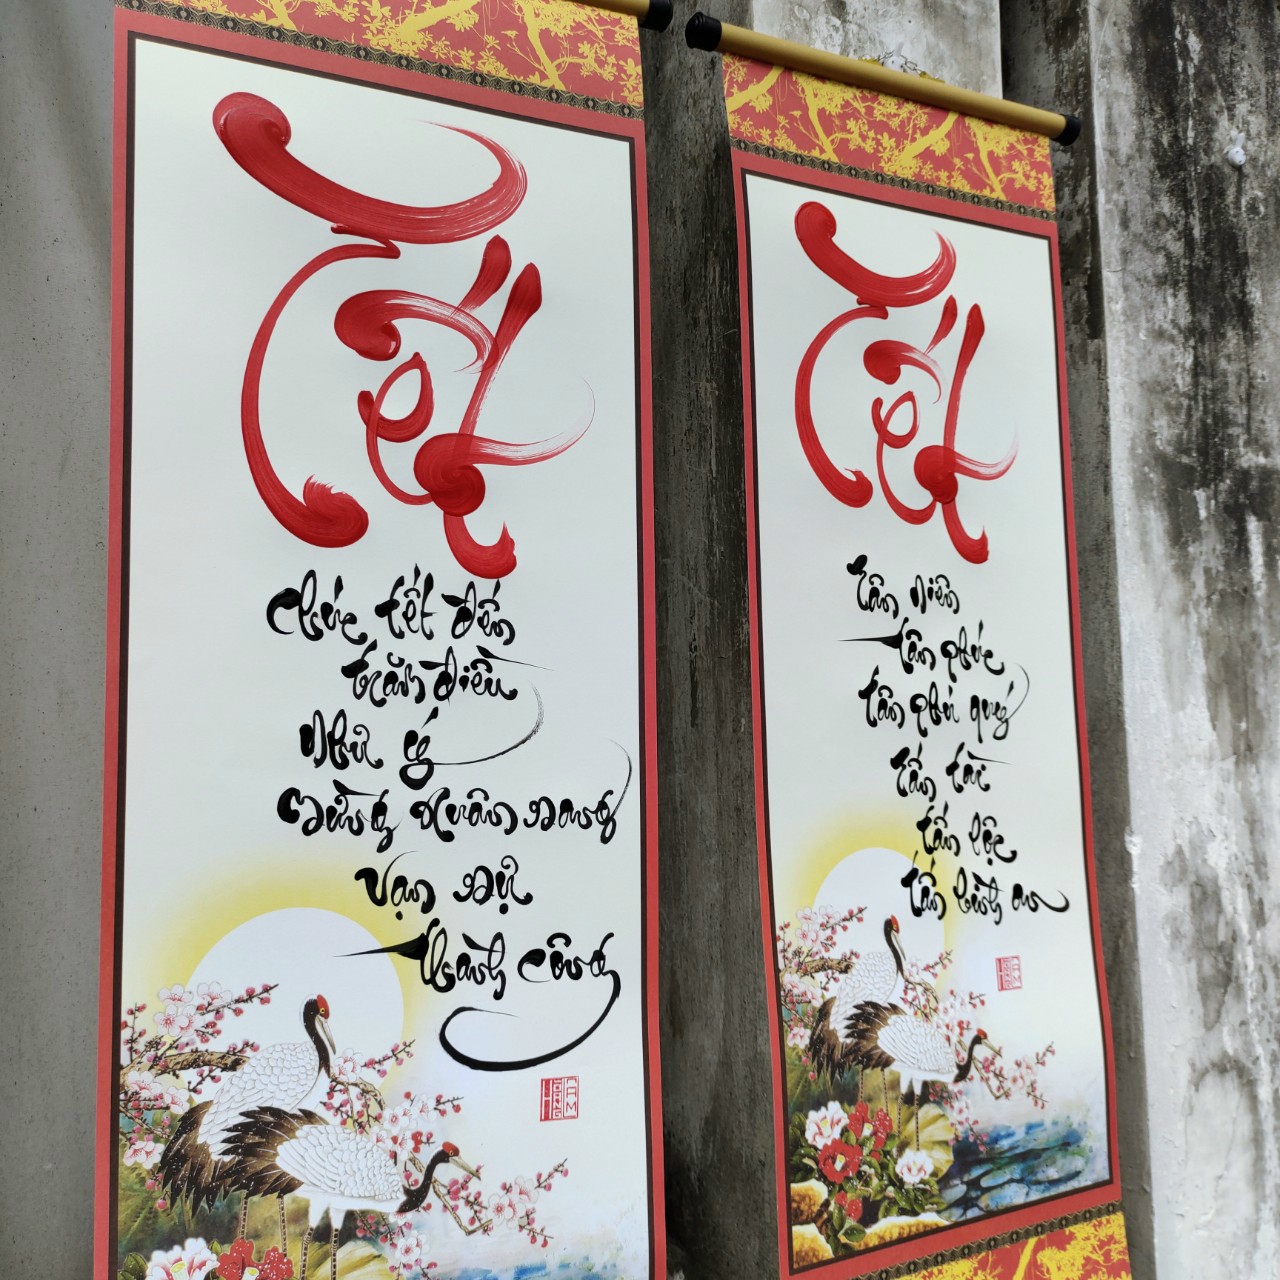 Tết
Chúc tết đến
trăm điều
Như ý
Mừng xuân sang
Vạn sự
thành công
HOÀNG LAM
Tết
Tân niên
tân phúc
tân phú quý
Tấn tài
tấn lộc
tấn bình an